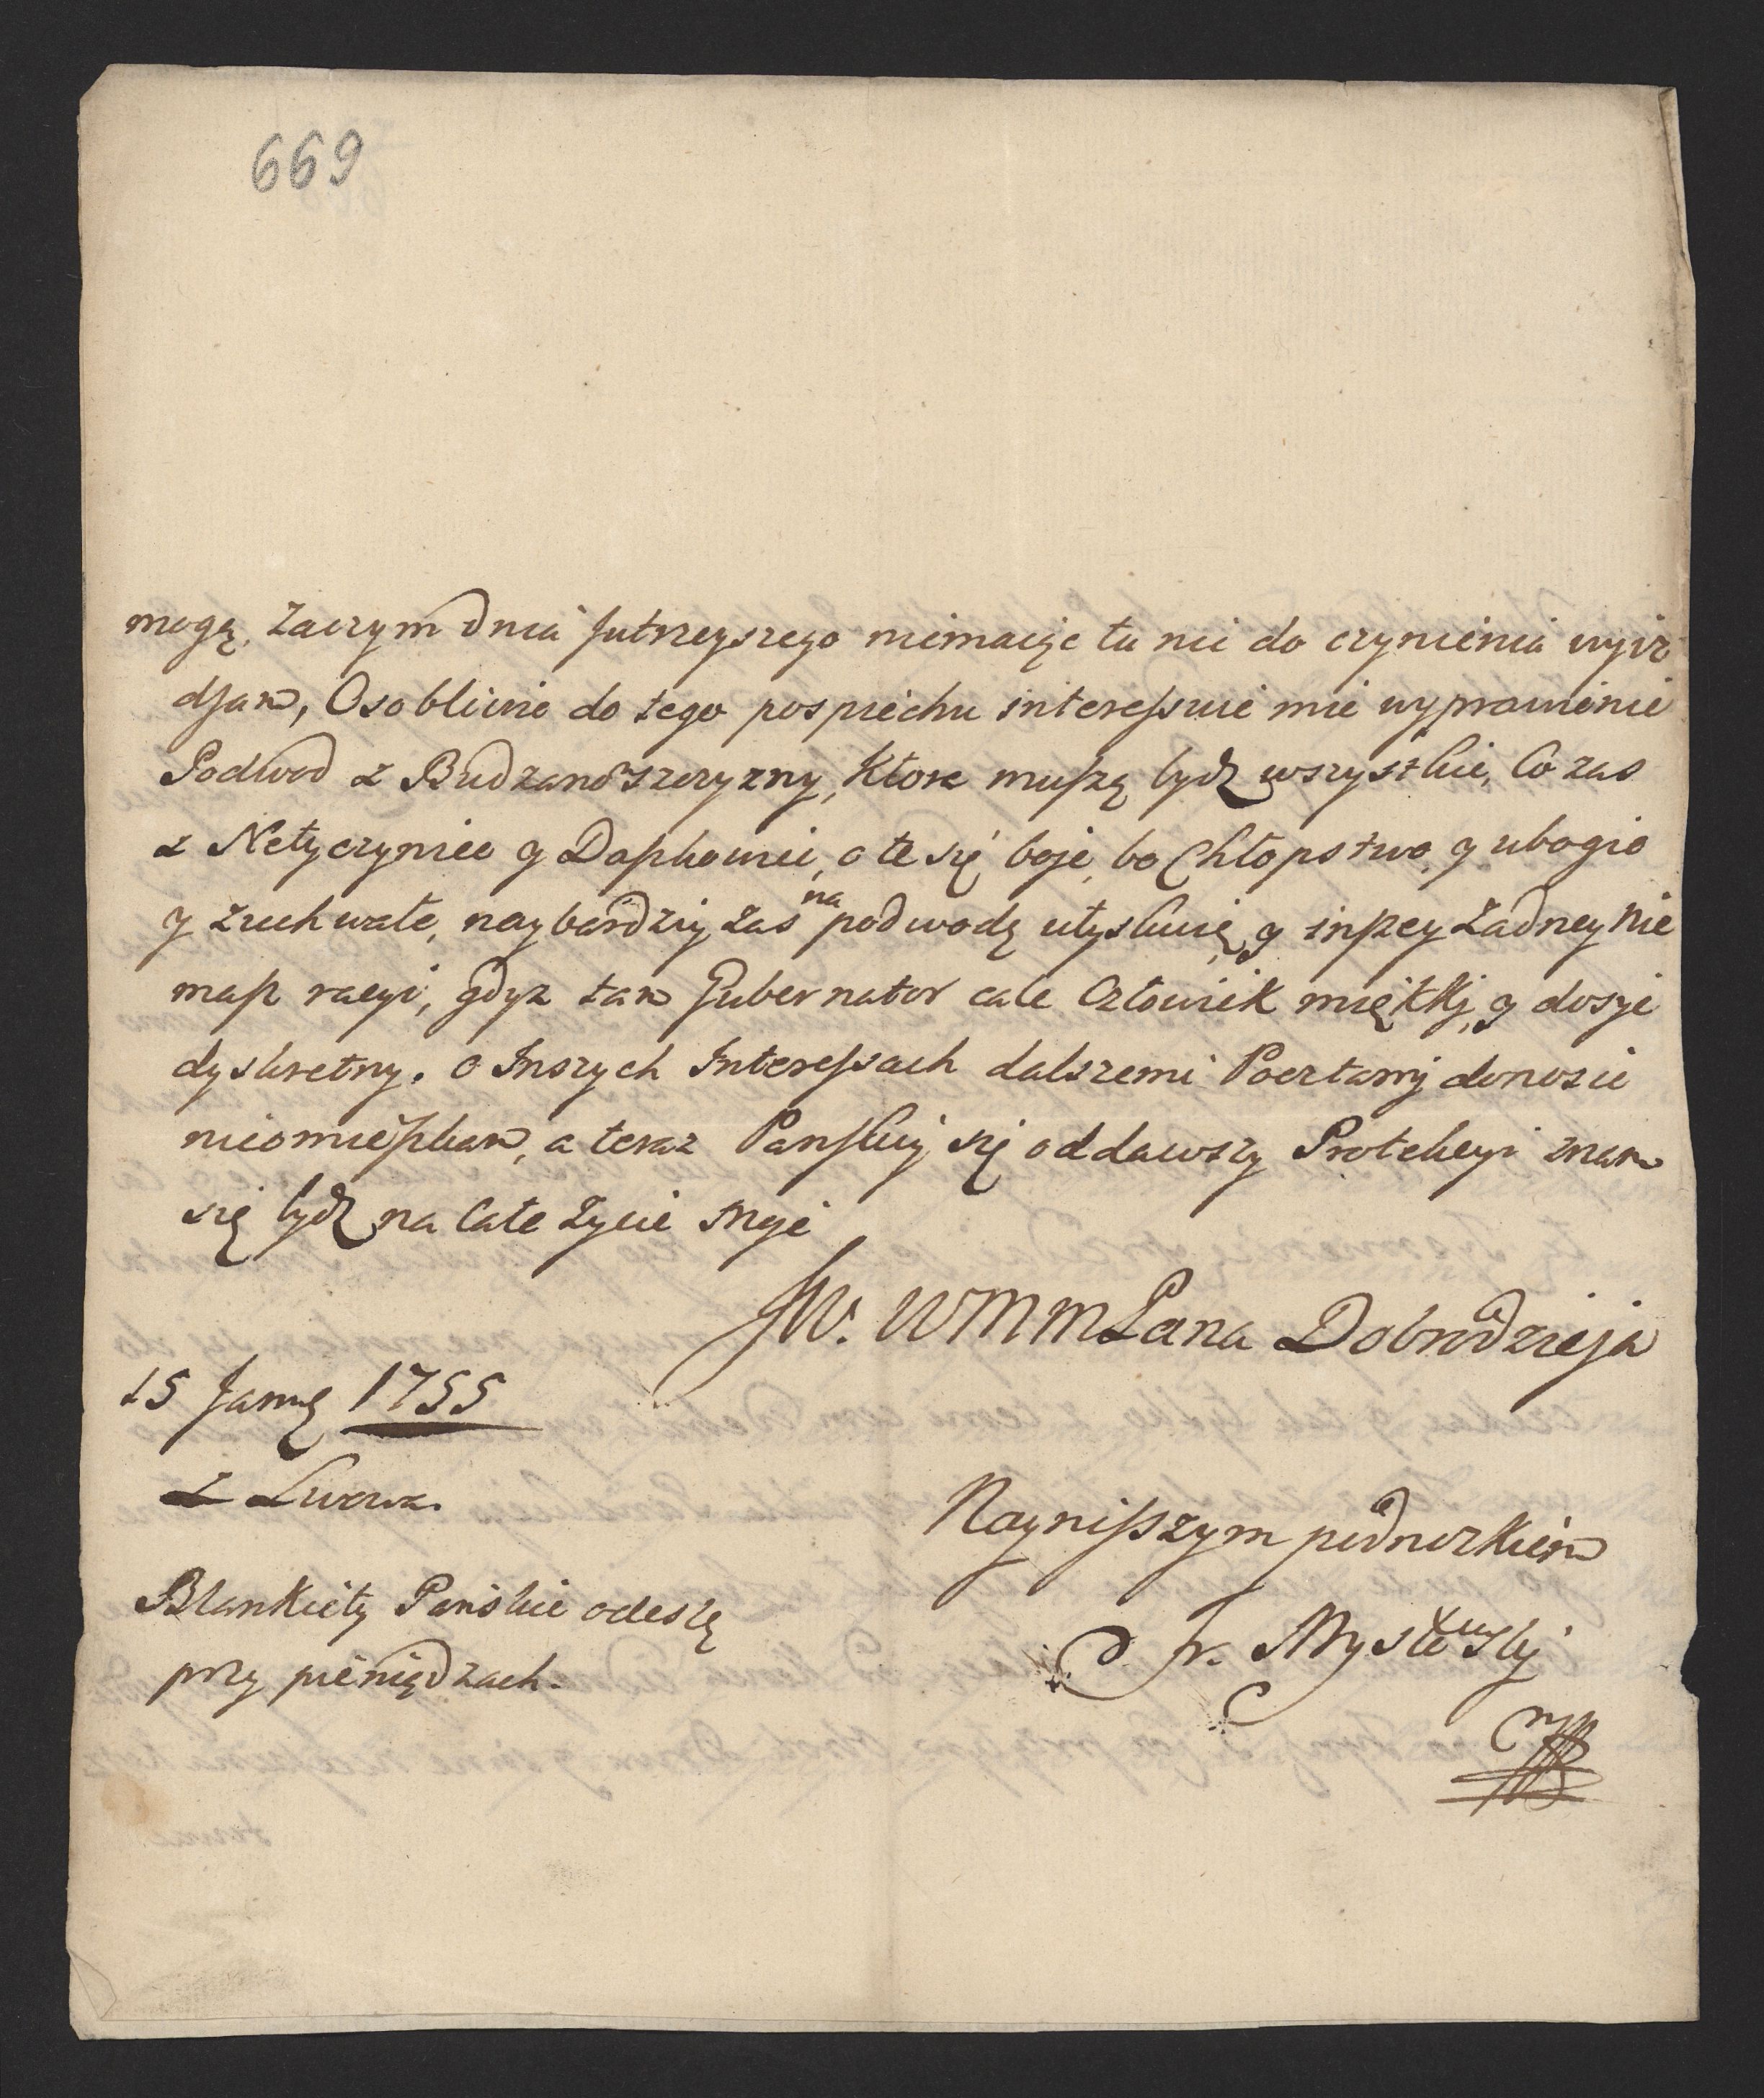 669
mogą, Zaczym dnia Jutrzeyszego niemaiąc tu nic do czynienia wyiż
dżam, Osobliwie do tego pospiechu interessuie mie wyprawienie
Podwod z Budzanowszczyzny, Ktore muszą bydz wszystkie, Co zas
z Netyczyniec y Daszkowiec, o te się boję, bo Chłopstwo y ubogie
y zuchwałe, naybardziy zas na podwodę utyskuią, y inszey Zadney nie
masz racyi, gdyz tam Gubernator cale Człowiek miętkj, y dosyc
dyskretny. o Inszych Interessach dalszemi Pocztamj donosic
nieomieszkam, a teraz Panskiy się oddawszy Protekcyi znam
się bydz na Całe Zycie moje
JW. WMMPana Dobrodzieja
15 Janry 1755
z Lwowa.
Nayniższym podnozkiem
Blankiety Panskie odeslę
przy pieniądzach.
Fr. Mysłowskj